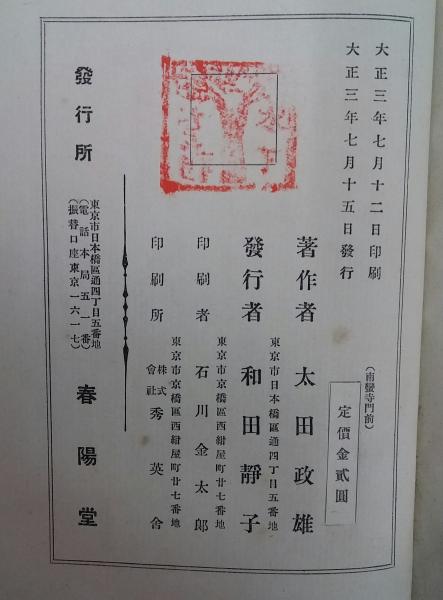 大正三年七月十二日印刷
大正三年七月十五日發行
（南蠻寺門前）
定價金貳圓
著作者　太田政雄
東京市日本橋區通四丁目五番地
發行者　和田靜子
東京市京橋區西紺屋町廿七番地
印刷者　石川金太郎
東京市京橋區西紺屋町廿七番地
印刷所　株式會社　秀英舍
發行所　春陽堂
東京市日本橋區通四丁目五番地
（電話本局五一番）
（振替口座東京一六一七）